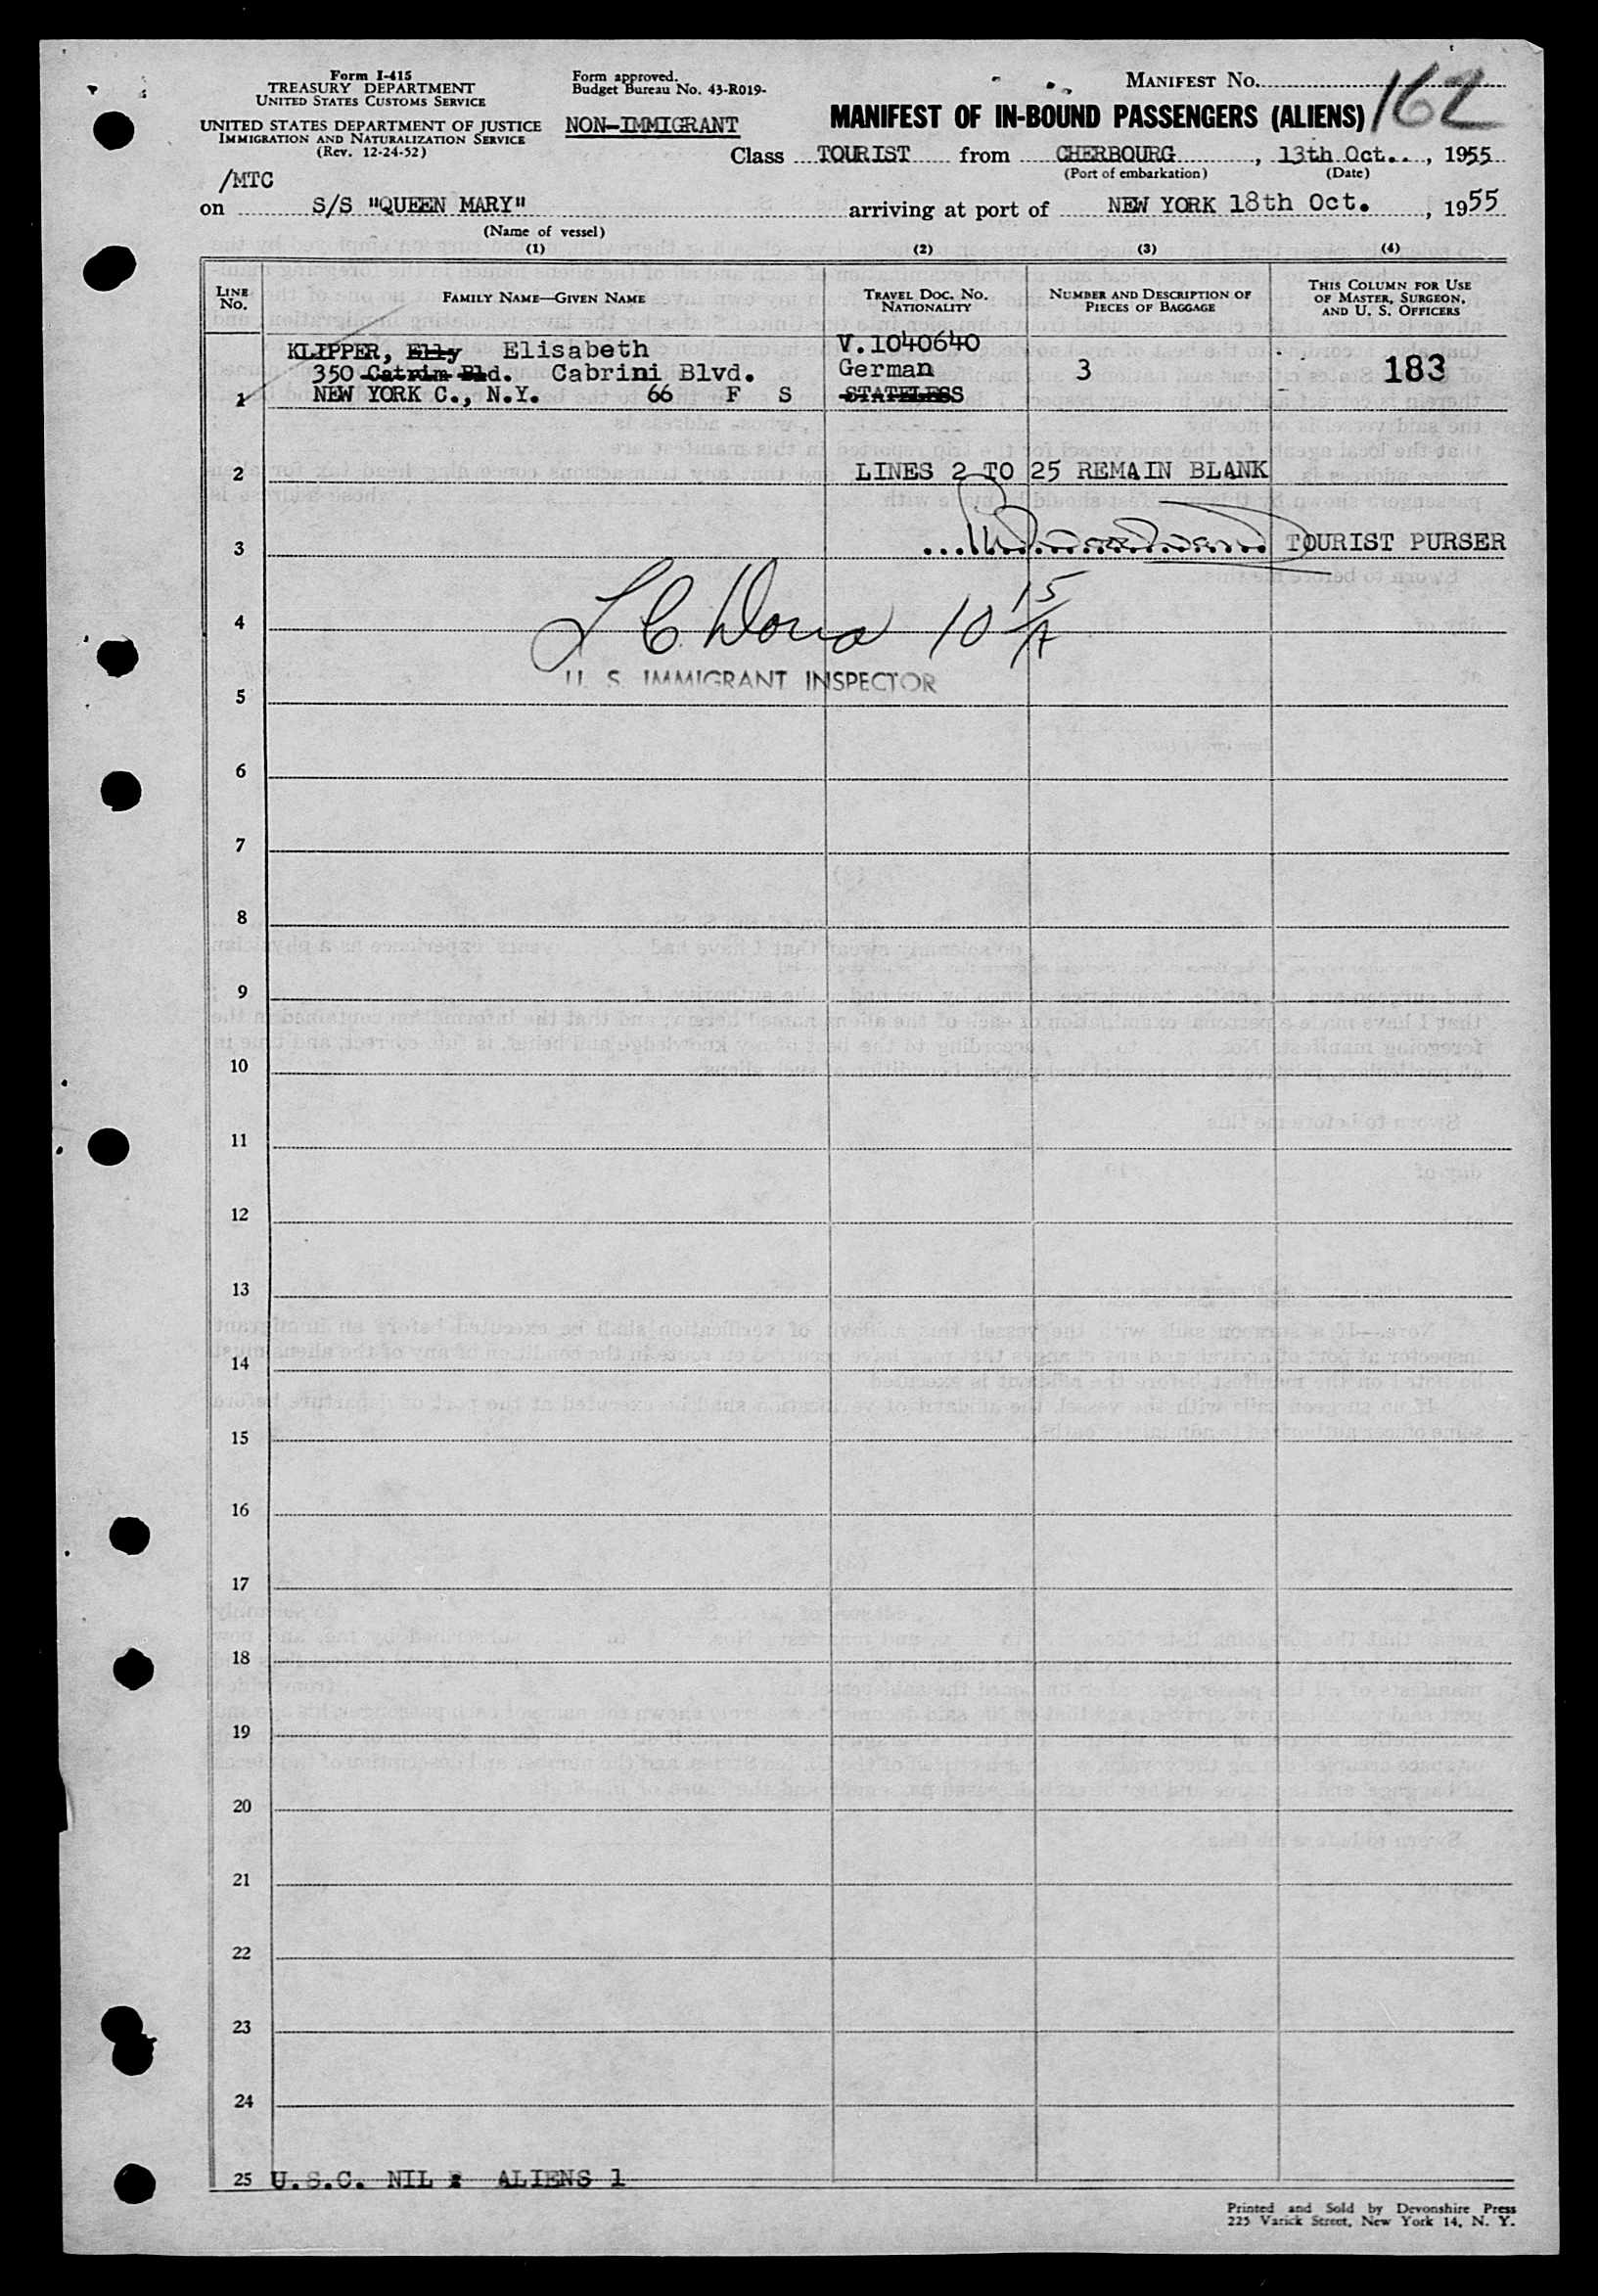 Form I-415
TREASURY DEPARTMENT
UNITED STATES CUSTOMS SERVICE
UNITED STATES DEPARTMENT OF JUSTICE
IMMIGRATION AND NATURALIZATION SERVICE
(Rev. 12-24-52)
Form approved.
Budget Bureau No. 43-R019-
NON-IMMIGRANT
MANIFEST NO. 162
MANIFEST OF IN-BOUND PASSENGERS (ALIENS)
Class TOURIST from CHERBOURG, 13th Oct., 1955
(Port of embarkation) (Date)
/MTC
on S/S "QUEEN MARY" arriving at port of NEW YORK 18th Oct., 1955
(Name of vessel)
(1) (2) (3) (4)
LINE NO. FAMILY NAME—GIVEN NAME TRAVEL DOC. NO. NATIONALITY NUMBER AND DESCRIPTION OF PIECES OF BAGGAGE THIS COLUMN FOR USE OF MASTER, SURGEON, AND U. S. OFFICERS
KLIPPER, Elly Elisabeth V.1040640
350 Catrim Bld. Cabrini Blvd. German 3 183
1 NEW YORK C., N.Y. 66 F S STATELESS
2 LINES 2 TO 25 REMAIN BLANK
3 TOURIST PURSER
4 10 15/A
U. S. IMMIGRANT INSPECTOR
5
6
7
8
9
10
11
12
13
14
15
16
17
18
19
20
21
22
23
24
25 U.S.C. NIL : ALIENS 1
Printed and Sold by Devonshire Press
225 Varick Street, New York 14, N. Y.